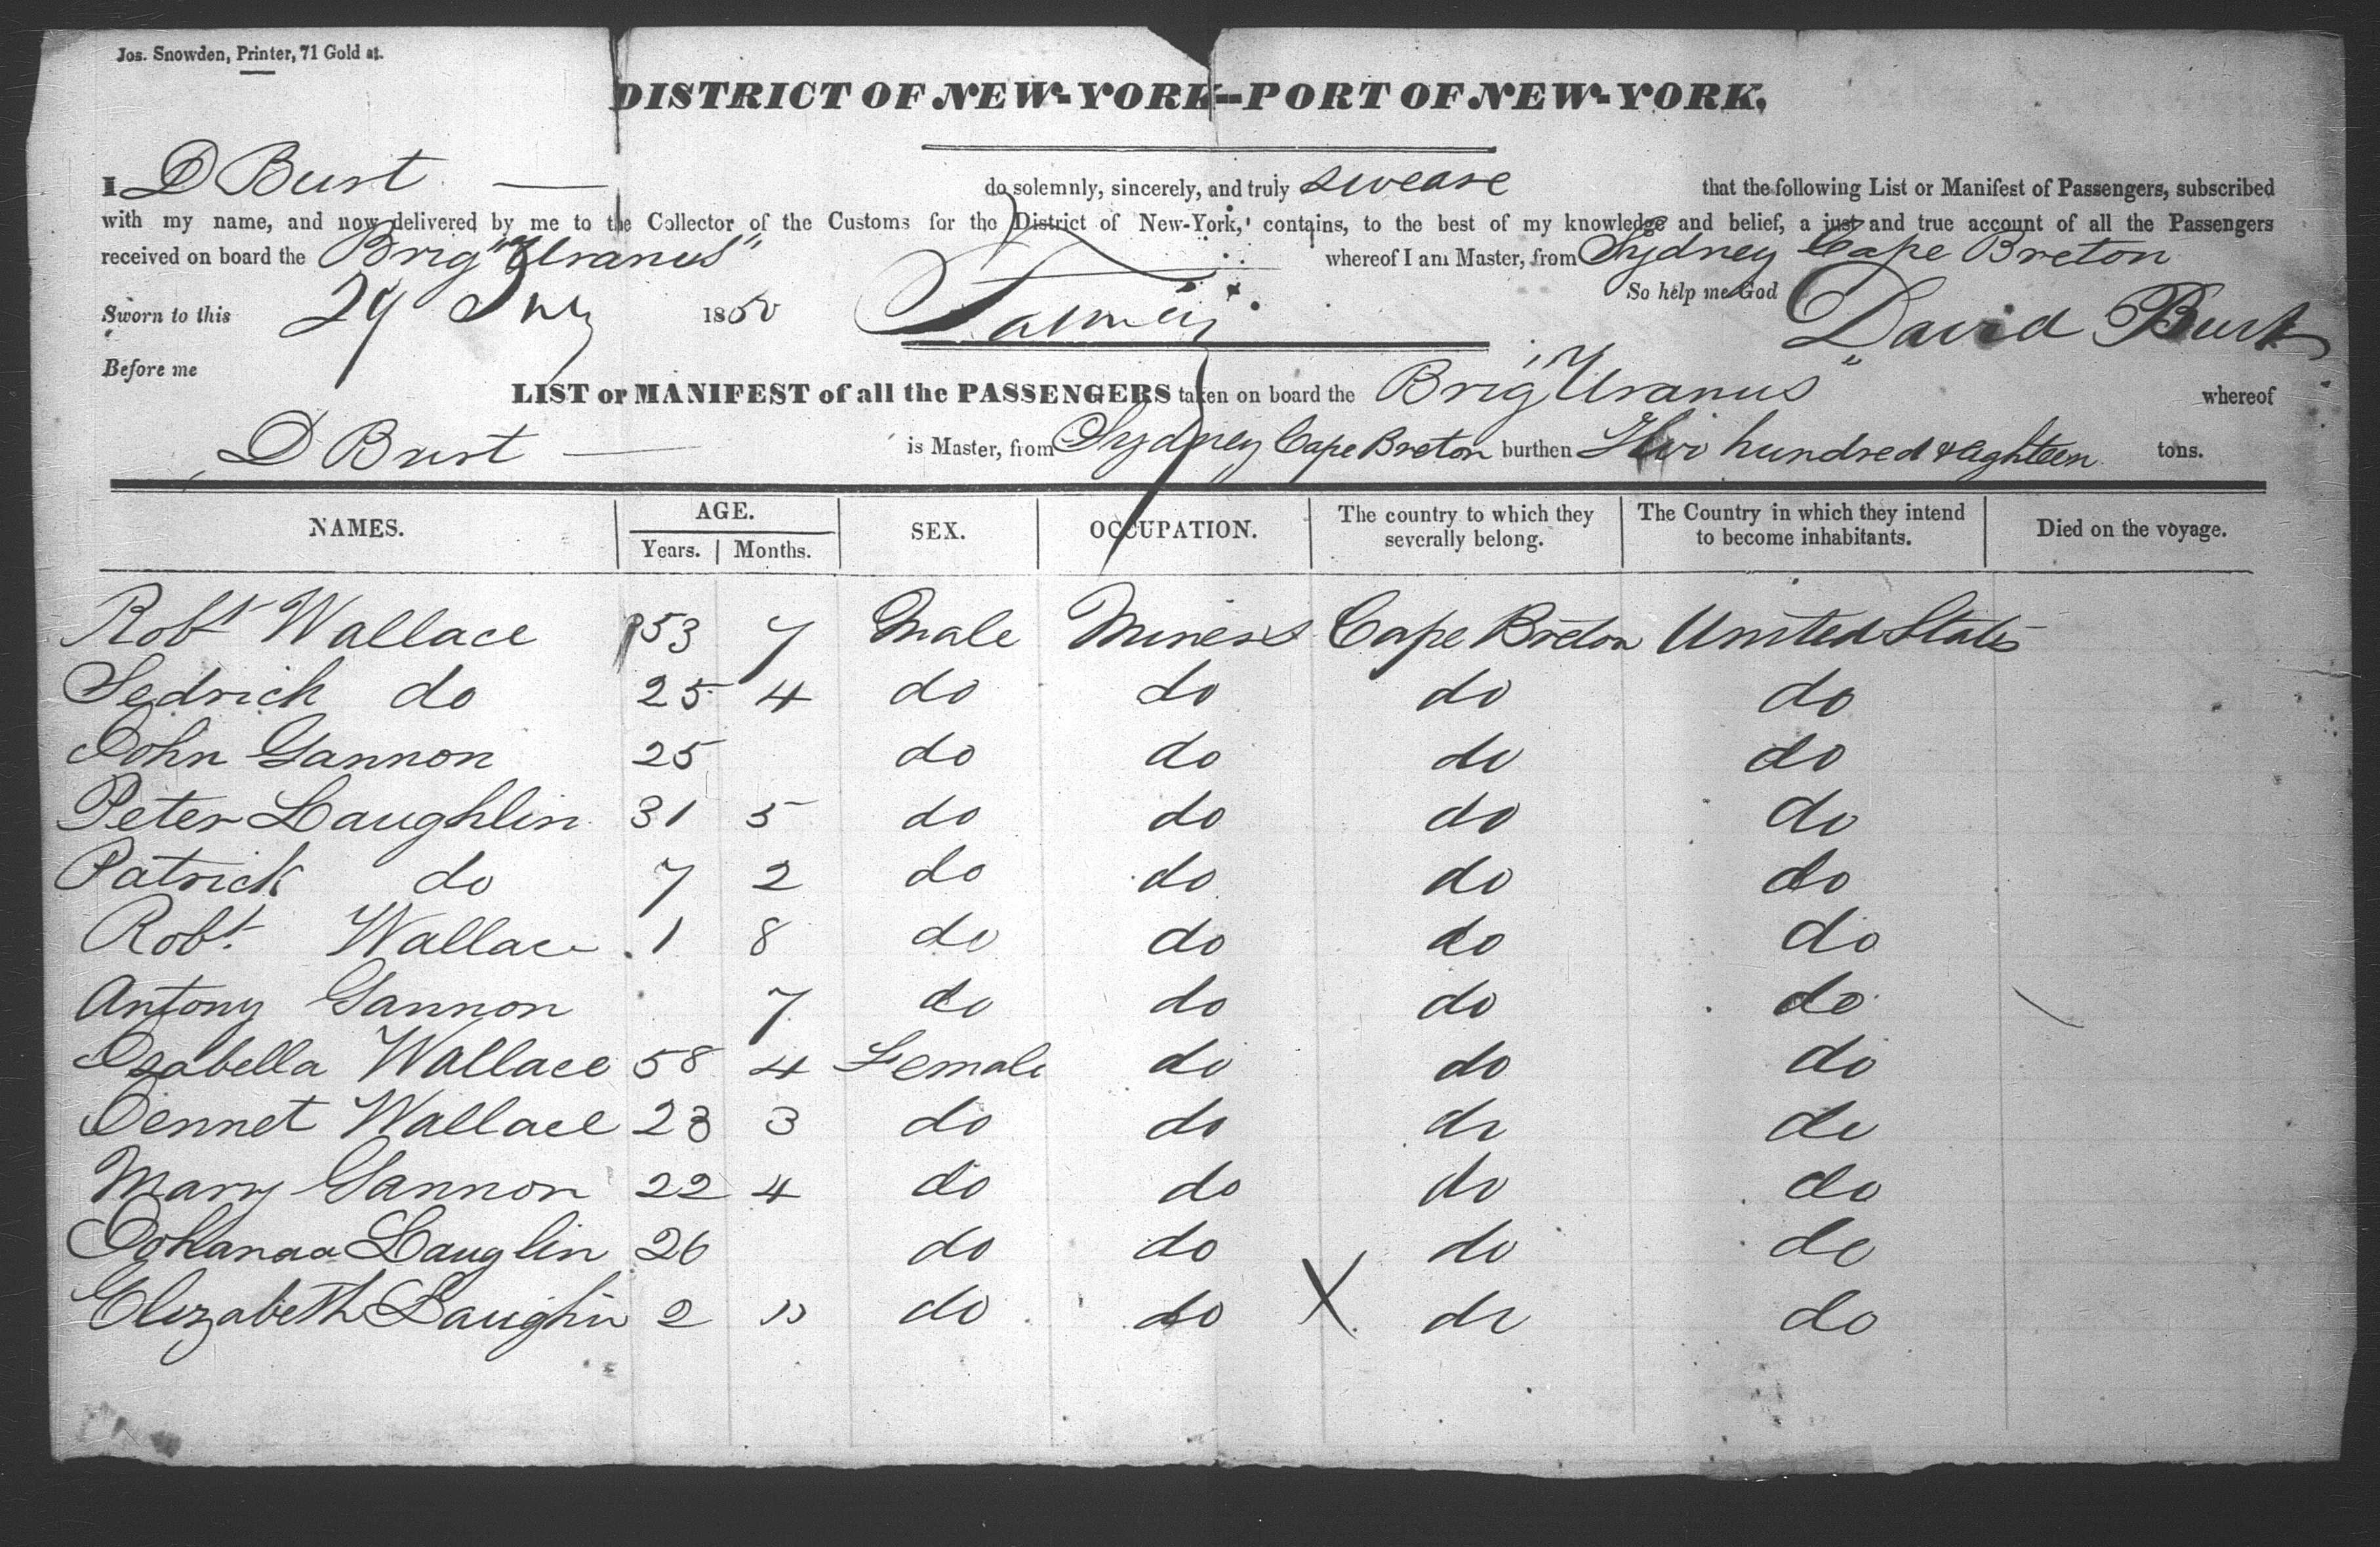 Jos. Snowden, Printer, 71 Gold st.
DISTRICT OF NEW-YORK--PORT OF NEW-YORK,
I D Burt do solemnly, sincerely, and truly sweare that the following List or Manifest of Passengers, subscribed
with my name, and now delivered by me to the Collector of the Customs for the District of New-York, contains, to the best of my knowledge and belief, a just and true account of all the Passengers
received on board the Brig "Uranus" whereof I am Master, from Sydney Cape Breton
So help me God
Sworn to this 29 1850 David Burt
Before me
LIST or MANIFEST of all the PASSENGERS taken on board the Brig "Uranus" whereof
D Burt is Master, from Sydney Cape Breton burthen Two hundred & eighteen tons.
NAMES. AGE. Years. Months. SEX. OCCUPATION. The country to which they severally belong. The Country in which they intend to become inhabitants. Died on the voyage.
Robt Wallace 53 7 Male Miners Cape Breton United States
Sedrick do 25 4 do do do do
John Gannon 25 do do do do
Peter Laughlin 31 5 do do do do
Patrick do 7 2 do do do do
Robt. Wallace 1 8 do do do do
Antony Gannon 7 do do do do
Isabella Wallace 58 4 Female do do do
Jennet Wallace 23 3 do do do do
Mary Gannon 22 4 do do do do
Johanaa Lauglin 26 do do do do
Elizabeth Laughin 2 do do X do do